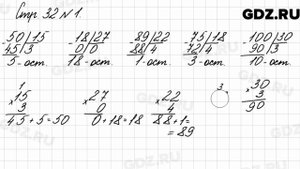 Стр. 32 № 1.
GDZ.RU
50|15 -18|27 89|22 75|18 -100|30
45|3 0|0 88|4 72|4 90|3
5-ост. 18-ост. 1-ост. 3-ост. 10-ост.
1 3
×15 ×27 ×22 30
3 0 4 3
45+5=50 0+18=18 88+1= 90
= 89
GDZ.RU